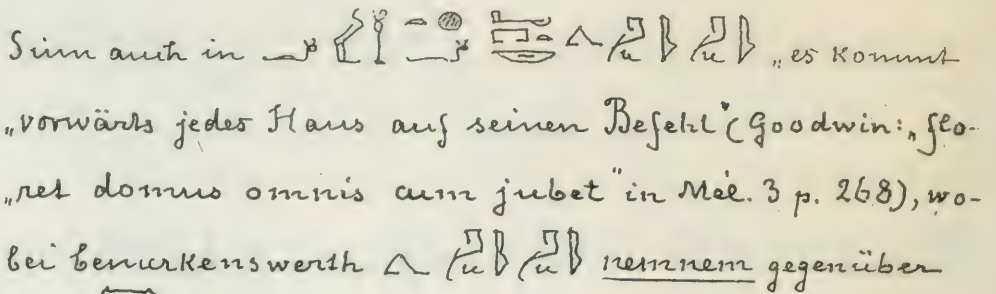 Sinn auch in „es kommt
„vorwärts jedes Haus auf seinen Befehl" (Goodwin: „flo-
„ret domus omnis cum jubet" in Mél. 3 p. 268), wo-
bei bemerkenswerth nemnem gegenüber